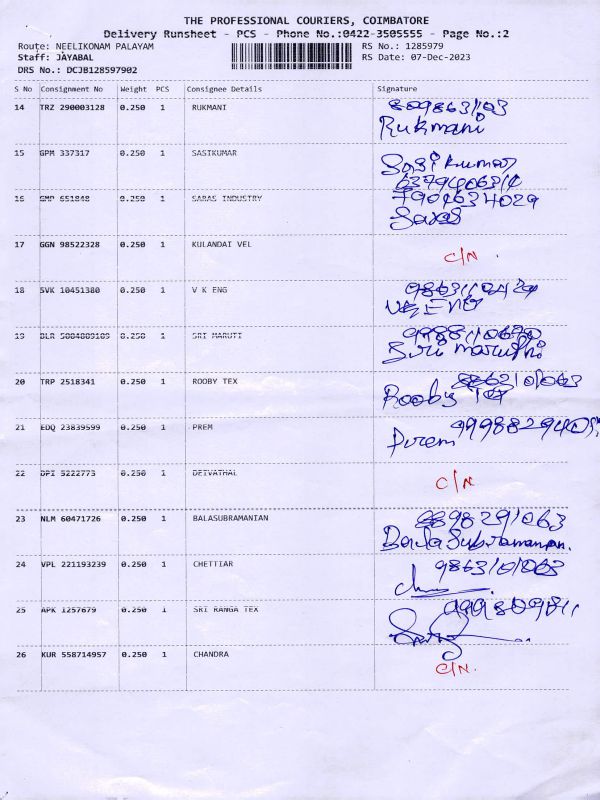 THE PROFESSIONAL COURIERS, COIMBATORE
Delivery Runsheet - PCS - Phone No.:0422-3505555 - Page No.:2
Route: NEELIKONAM PALAYAM RS No.: 1285979
Staff: JAYABAL RS Date: 07-Dec-2023
DRS No.: DCJB128597902
S No Consignment No Weight PCS Consignee Details Signature
14 TRZ 290003128 0.250 1 RUKMANI
Rukmani
15 GPM 337317 0.250 1 SASIKUMAR
Sasikumar
16 GMP 651848 0.250 1 SARAS INDUSTRY 7904634029
Saras
17 GGN 98522328 0.250 1 KULANDAI VEL C/N
18 SVK 10451380 0.250 1 V K ENG
VK ENG
19 BLR 0.250 1 SRI MARUTI
20 TRP 2518341 0.250 1 ROOBY TEX
Rooby Tex
21 EDQ 23839599 0.250 1 PREM
Prem
22 DPI 5222773 0.250 1 DEIVATHAL C/N
23 NLM 60471726 0.250 1 BALASUBRAMANIAN
24 VPL 221193239 0.250 1 CHETTIAR
25 APK 1257679 0.250 1 SRI RANGA TEX
26 KUR 558714957 0.250 1 CHANDRA C/N